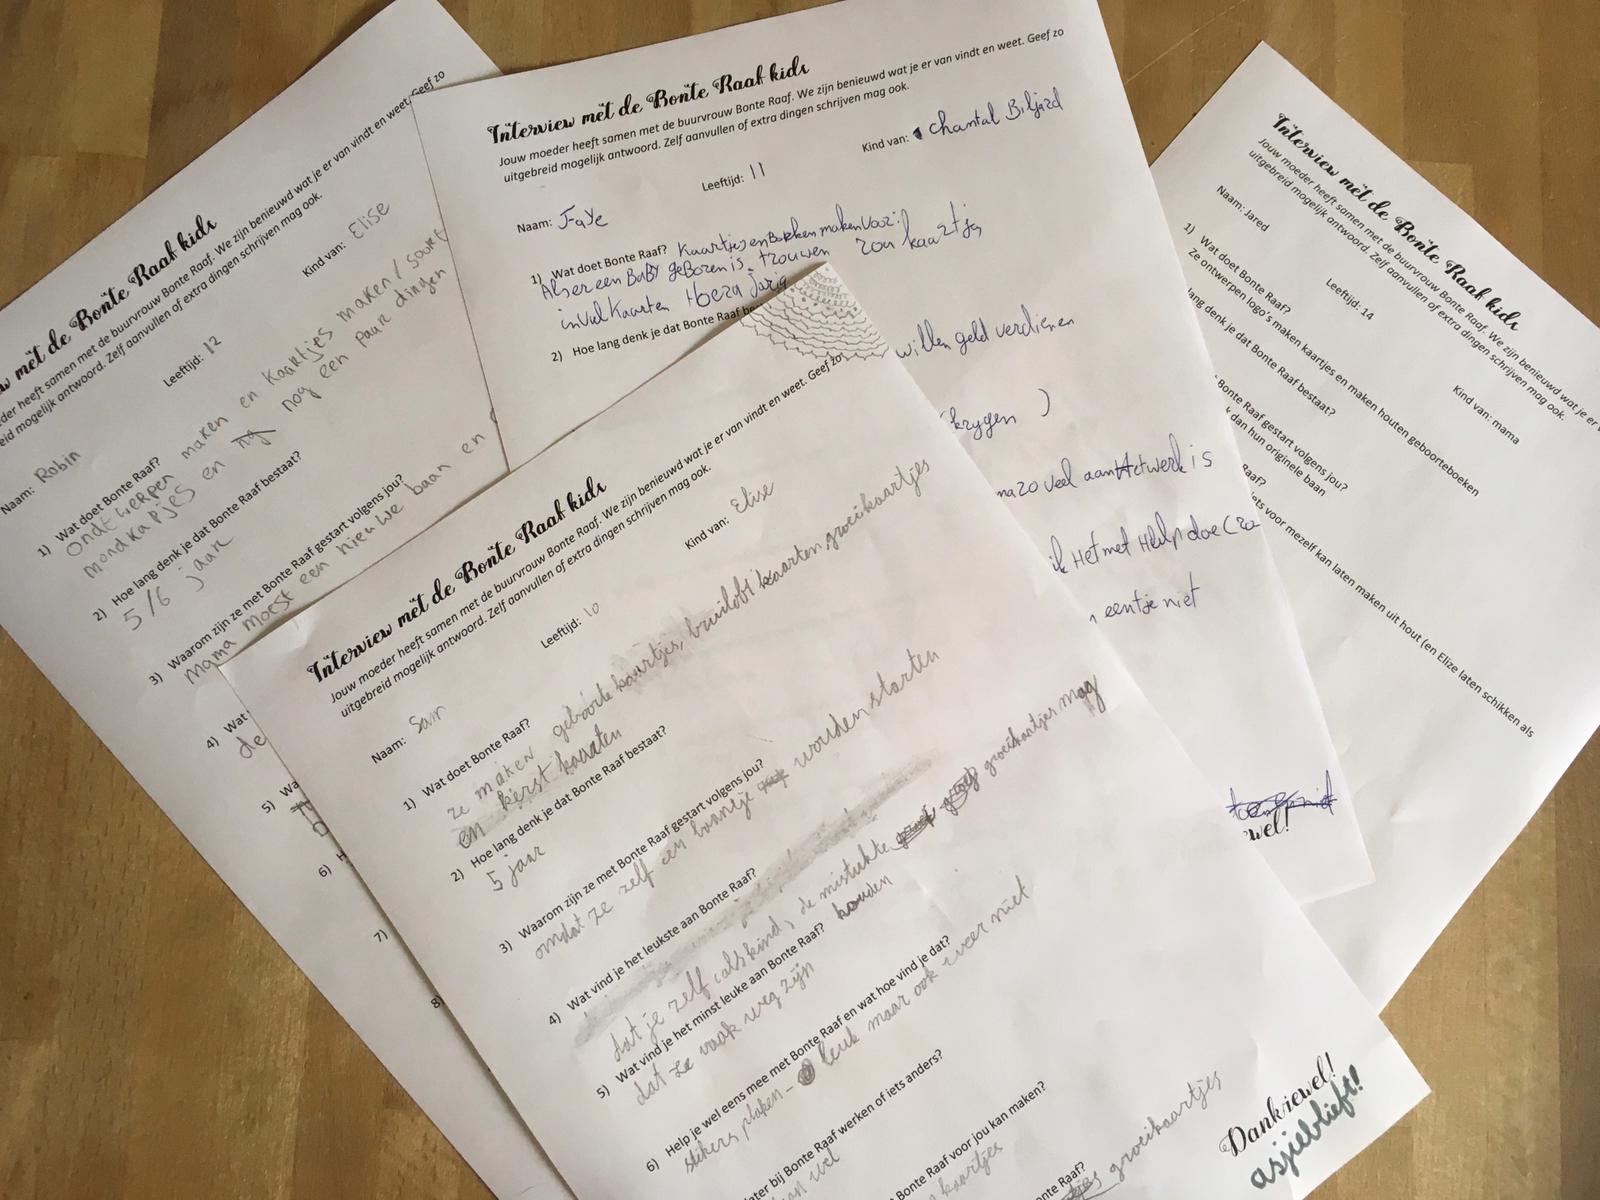 Interview met de Bonte Raaf kids
Jouw moeder heeft samen met de buurvrouw Bonte Raaf. We zijn benieuwd wat je er van vindt en weet. Geef zo
uitgebreid mogelijk antwoord. Zelf aanvullen of extra dingen schrijven mag ook.
Naam: Robin
Leeftijd: 12
Kind van: Elise
1) Wat doet Bonte Raaf?
ondtwerpen maken en kaartjes maken / soort
mondkapjes en nog een paar dingen
2) Hoe lang denk je dat Bonte Raaf bestaat?
5/6 jaar
3) Waarom zijn ze met Bonte Raaf gestart volgens jou?
mama moest een nieuwe baan en
4) Wat
de
5) Wa
6) H
7)
8)
Interview met de Bonte Raaf kids
Jouw moeder heeft samen met de buurvrouw Bonte Raaf. We zijn benieuwd wat je er van vindt en weet. Geef zo
uitgebreid mogelijk antwoord. Zelf aanvullen of extra dingen schrijven mag ook.
Naam: Faye
Leeftijd: 11
Kind van: Chantal Biljard
1) Wat doet Bonte Raaf? Kaartjes en Bokken maken voor:
Als er een BaBY geBoren is, trouwen zon kaartje
invul kaarten Hoera Jarig
2) Hoe lang denk je dat Bonte Raaf be
willen geld verdienen
(krygen )
ma zo veel aan Het werk is
ik Het met Help doe (za
eentje niet
ewel!
Interview met de Bonte Raaf kids
Jouw moeder heeft samen met de buurvrouw Bonte Raaf. We zijn benieuwd wat je er van vindt en weet. Geef zo
uitgebreid mogelijk antwoord. Zelf aanvullen of extra dingen schrijven mag ook.
Naam: Jared
Leeftijd: 14
Kind van: mama
1) Wat doet Bonte Raaf?
Ze ontwerpen logo's maken kaartjes en maken houten geboorteboeken
lang denk je dat Bonte Raaf bestaat?
Bonte Raaf gestart volgens jou?
dan hun originele baan
Raaf?
iets voor mezelf kan laten maken uit hout (en Elize laten schikken als
Interview met de Bonte Raaf kids
Jouw moeder heeft samen met de buurvrouw Bonte Raaf. We zijn benieuwd wat je er van vindt en weet. Geef zo
uitgebreid mogelijk antwoord. Zelf aanvullen of extra dingen schrijven mag ook.
Naam: Sam
Leeftijd: 10
Kind van: Elise
1) Wat doet Bonte Raaf?
ze maken geboorte kaartjes, bruiloft kaarten groeikaartjes
en kerst kaarten
2) Hoe lang denk je dat Bonte Raaf bestaat?
5 jaar
3) Waarom zijn ze met Bonte Raaf gestart volgens jou?
omdat ze zelf een baantje wouden starten
4) Wat vind je het leukste aan Bonte Raaf?
dat je zelf, als kind, de mistukte groeikaartjes mag
houden
5) Wat vind je het minst leuke aan Bonte Raaf?
dat ze vaak weg zijn
6) Help je wel eens mee met Bonte Raaf en wat hoe vind je dat?
stikers plaken - leuk maar ook weer niet
later bij Bonte Raaf werken of iets anders?
wel
Raaf voor jou kan maken?
kaartjes
onte Raaf?
groeikaartjes
Dankjewel!
asjeblieft!